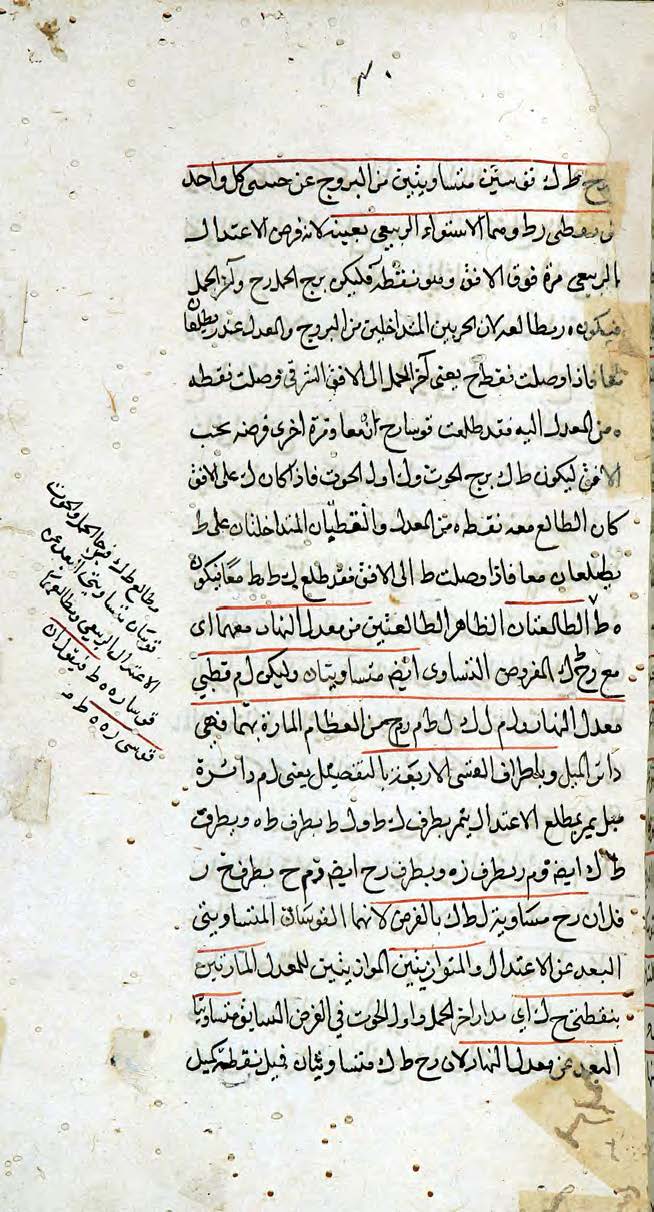 رح ط ك قوسين متساويتين من البروج عن جنبتي كل واحد
من نقطتي ر ط وهما الاستواء الربيعي بعينه لانه فرض الاعتدال
الربيعي مرة فوق الافق وهو نقطة فليكن برج الحمل رح وآخر الحمل
فيكون ه ر مطالعه لان الجزءين المتداخلين من البروج والمعدل عند ر يطلعان
معا فاذا وصلت نقطة ح يعني آخر الحمل الى الافق الشرقي وصلت نقطة
ه من المعدل اليه فقد طلعت قوسا رح ره معا ومرة اخرى فرضه تحت
الافق ليكون ط ك برج الحوت و ك اول الحوت فاذا كان ك على الافق
كان الطالع معه نقطة ه من المعدل والنقطتان المتداخلتان على ط
يطلعان معا فاذا وصلت ط الى الافق فقد طلع ك ط ه ط معا فيكون
ه ط الطالعتان الظاهر الطالعتين من معدل النهار معهما اى
مع رح ط ك المفروض التساوى ايضا متساويتان وليكن ل م قطبي
معدل النهار و ل م ل ك ل ط م ر م ح من العظام المارة بهما فهي
دائر الميل وباطراف القسي الاربعة بالتفصيل يعنى ل م دائرة
ميل يمر بمطلع الاعتدال يمر بطرف ك ط و ل ط بطرف ط ه وبطرف
ط ك ايضا و م ر بطرف ر ه وبطرف رح ايضا و م ح بطرف ح ر
فلان رح مساوية ل ط ك بالفرض لانهما القوسان المتساويتي
البعد عن الاعتدال والمتوازيتين الموازيتين للمعدل المارتين
بنقطتي ح ك اي مدار اخر الحمل واول الحوت في الفرض السابق متساويتا
البعد عن معدل النهار لان رح ط ك متساويتان فميل نقطة ك كميل
مطالع ط ك برجا الحمل والحوت
قوسان متساويتي البعد عن
الاعتدال الربيعي ومطالعهما
قوسا ر ه ه ط فنقول ان
قوسى ر ه ه ط